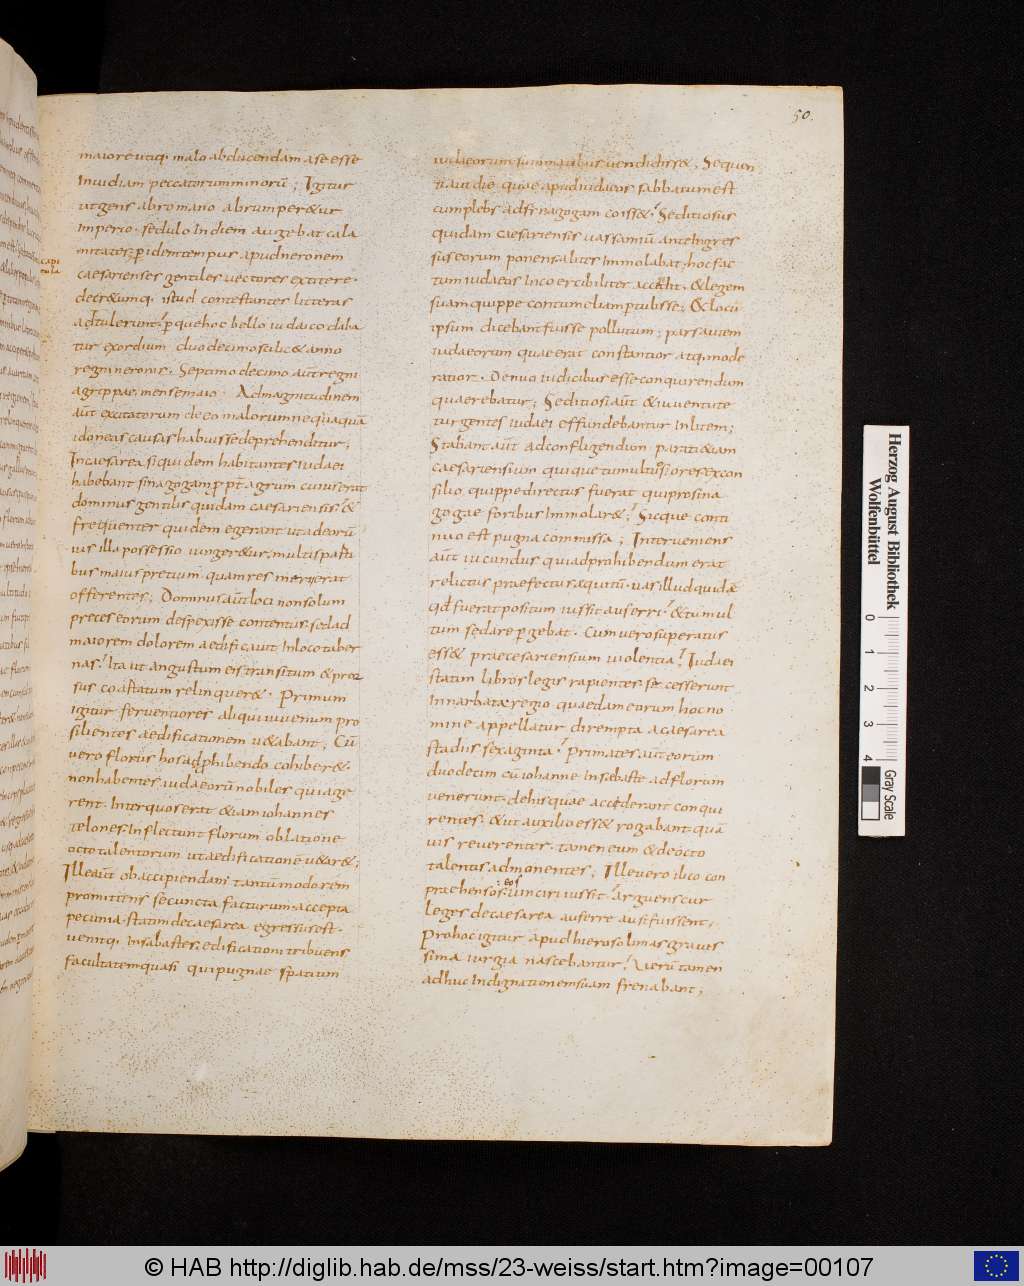 50.
maiore utiq. malo abducendam a se esse
Inuidiam peccatorum minorū; Igitur
ut gens a bromano abrumper&ur
Imperio. sedulo In diem augebat cala
mitates; p idem tempus apud neronem
caesarienses gentiles uectores extitere.
decr&umq. istud contestantes litteras
adtulerunt; p que hoc bello iudaico daba
tur exordium duodecimo scilic& anno
regni neronis. Septimo decimo aūt regni
agrippae. mense maio. Ad magnitudinem
aūt excitatorum de eo malorum nequaquā
idoneas causas habuisse deprehenditur;
In caesarea siquidem habitantes iudaei
habebant sinagogam ppt agrum cuius erat
dominus gentilis quidam caesariensis &
frequenter quidem egerant ut ad eorū
ius illa possessio iunger&ur; multis parti
bus maius pretium quam res mererat
offerentes; Dominus aūt loci non solum
preces eorum despexisse contentus. sed ad
maiorem dolorem aedificauit In loco taber
nas; Ita ut angustum eis transitum & pror
sus coastatum relinquer&. Primum
igitur feruentiores aliqui iuuenum pro
silientes aedificationem u&abant; Cū
uero florus hos ad phibendo cohiber&.
non habentes iudaeorū nobiles quid age
rent. Inter quos erat &iam iohannes
telones. Inflectunt florum oblatione
octo talentorum ut aedificationē u&ar&;
Ille aūt ob accipiendam tantummodo rem
promittens se cuncta facturum. accepta
pecunia. statim de caesarea egressus est.
uenitq. In sabastes; edificationi tribuens
facultatem quasi qui pugnae spatium
iudaeorum summatibus uendidiss&. Sequen
ti aut die quae apud iudaeos sabbatum est
cum plebs ad sinagogam coiss&; Seditiosus
quidam caesariensis uas samiū ante Ingres
sus eorum ponens. alites Immolabat. hoc fac
tum iudaeos Incoercibiliter accendit. & legem
suam quippe contumeliam ptulisse; & locū
ipsum dicebant fuisse pollutum; pars autem
iudaeorum quae erat constantior atq. mode
ratior. Denuo iudicibus esse conquirendum
quaerebatur; Seditiosi aūt & iuuentute
turgentes iudaei effundebantur In litem;
Stabant aūt ad confligendum parati &iam
caesariensium quique tumultuosiores. ex con
silio quippe directus fuerat qui pro sina
gogae foribus Immolar&; Sicque conti
nuo est pugna commissa; Interueniens
aūt iucundus qui ad prohibendum erat
relictus praefectus. aequitū. uas illud quidē
qd fuerat positum iussit auferri; & tumul
tum sedare pgebat. Cum uero superatus
ess& prae cesariensium uiolentia; Iudaei
statim libros legis rapientes. se cesserunt
In narbata; regio quaedam eorum hoc no
mine appellatur dirempta a caesarea
stadiis sexaginta; primates. aūt eorum
duodecim cū iohanne In sebaste ad florum
uenerunt. de his quae acciderant conqui
rentes. & ut auxilio ess& rogabant quā
uis reuerenter. tamen eum & de octo
talentis admonentes; Ille uero ilico con
praehensos: eos uinciri iussit; arguens cur
leges de caesarea auferre ausi fuissent;
Pro hoc igitur apud hierosolimas grauis
sima iurgia nascebantur; Uerū tamen
adhuc Indignationem suam frenabant;
Herzog August Bibliothek
Wolfenbüttel
0 1 2 3 4
Gray Scale
© HAB http://diglib.hab.de/mss/23-weiss/start.htm?image=00107